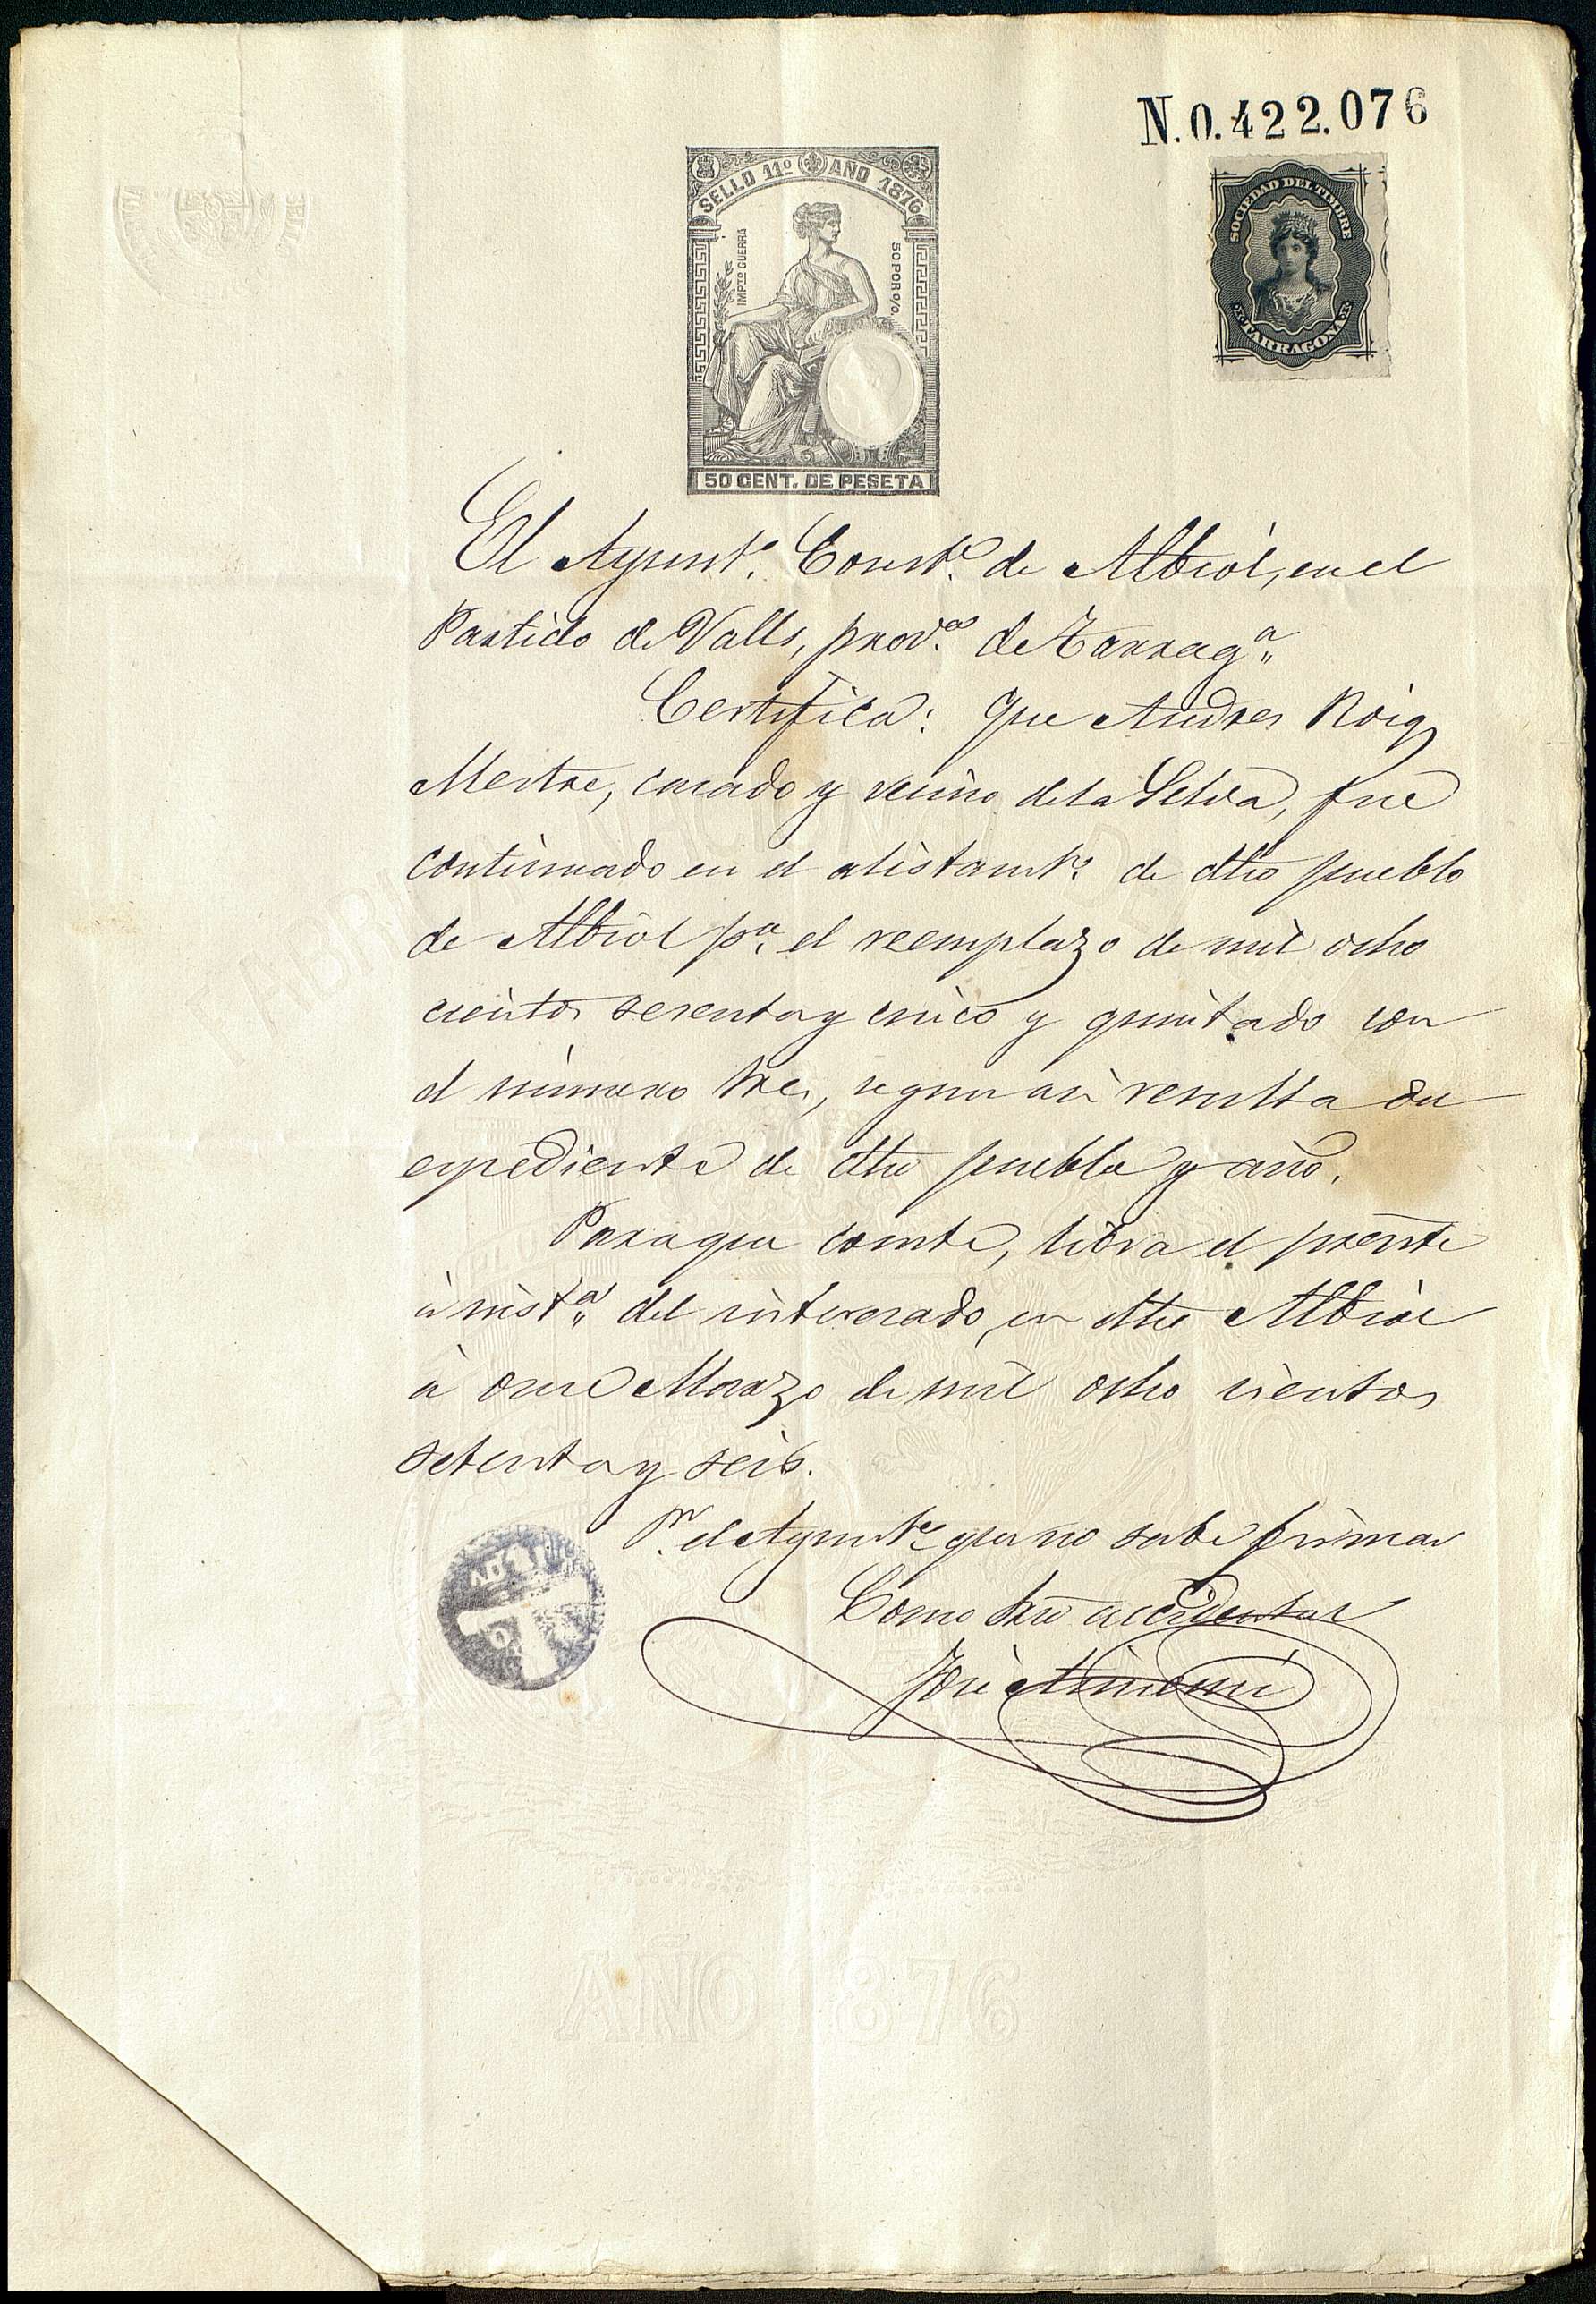 N.0.422.076
SELLO 11º AÑO 1876
IMPTO GUERRA
50 POR 0/0.
50 CENT. DE PESETA
SOCIEDAD DEL TIMBRE
TARRAGONA
El Ayunt.º Const.l de Albiol, en el
Partido de Valls, prov.ª de Tarrag.ª
Certifica: Que Andres Roig
Mestre, casado y vecino de la Selva, fué
continuado en el alistamt.º de dho pueblo
de Albiol p.ª el reemplazo de mil ocho
cientos sesenta y cinco y quintado con
el número tres, segun asi resulta du
espediente de dho pueblo y año.
Para que conste, libra el pnte
á inst.ª del interesado, en dho Albiol
á once Marzo de mil ocho cientos
setenta y seis.
P.r el Ayunt.º que no sabe firmar
Como srio accidental
José
AÑO 1876